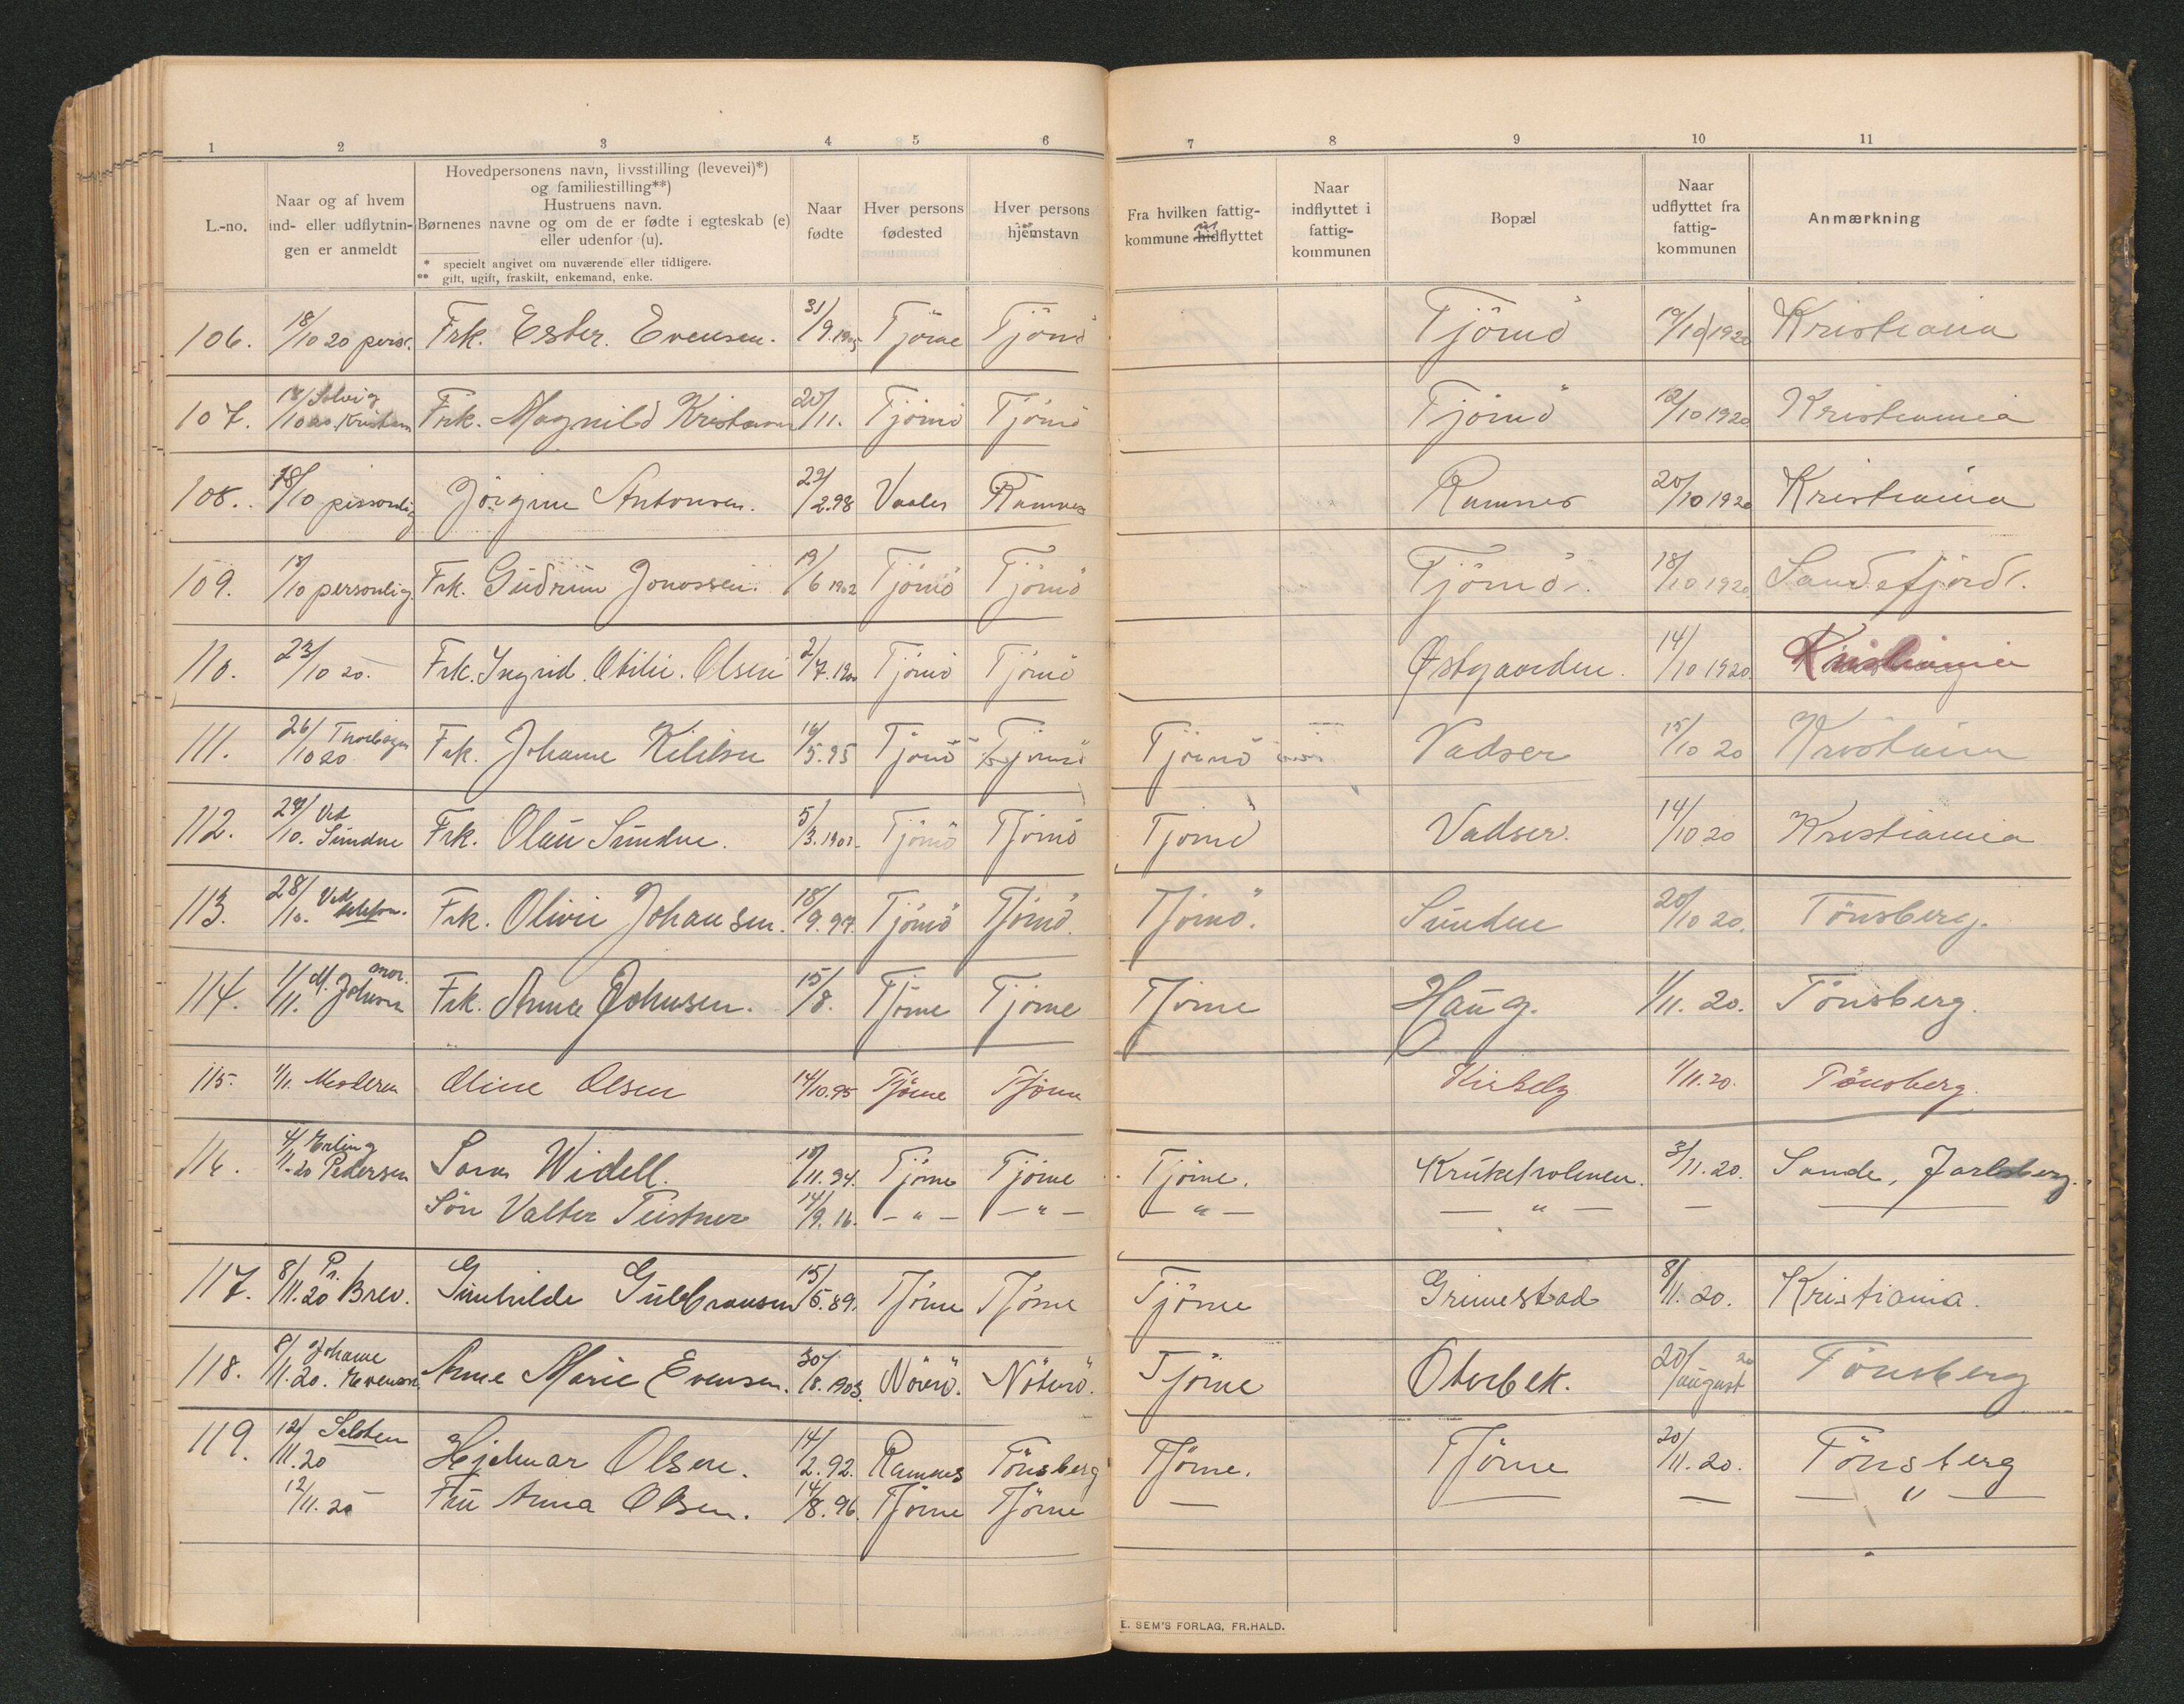 1 2 3 4 5 6 7 8 9 10 11
L.-no.
Naar og af hvem
ind- eller udflytnin-
gen er anmeldt
Hovedpersonens navn, livsstilling (levevei)*)
og familiestilling**)
Hustruens navn.
Børnenes navne og om de er fødte i egteskab (e)
eller udenfor (u).
* specielt angivet om nuværende eller tidligere.
** gift, ugift, fraskilt, enkemand, enke.
Naar
fødte
Hver persons
fødested
Hver persons
hjemstavn
Fra hvilken fattig-
kommune hidflyttet
Naar
indflyttet i
fattig-
kommunen
Bopæl
Naar
udflyttet fra
fattig-
kommunen
Anmærkning
106. 18/10 20 pers. Frk. Ester. Evensen. 31/9.1905 Tjöme Tjömö Tjömö 19/10 1920 Kristiania
107. 18/10 20 Solvig Kristian Frk. Magnild Kristiansen 20/11. Tjömö Tjömö Tjömö 12/10 1920 Kristiania
108. 18/10 personlig Jörgine Antonsen. 22/2.98 Vaaler Ramnes Ramnes 20/10 1920 Kristiania
109. 18/10 personlig Frk. Gudrun Jonassen. 19/6 1902 Tjömö Tjömö Tjömö. 18/10 1920 Sandefjord.
110. 23/10 20. Frk. Ingrid. Otilie. Olsen 2/7.190 Tjömö Tjömö Østgaarden. 14/10 1920. Kristiania
111. 26/10 20 Frk. Johanne Kililsen 16/5.95 Tjömö Tjömö Tjömö Vadser 15/10 20 Kristiania
112. 29/10. Ved Sundne Frk. Olau Sundne. 5/3.1901. Tjömö Tjömö Tjömö Vadser. 14/10 20 Kristiania
113. 28/10. Ved telefon. Frk. Olivie Johansen. 18/9.97. Tjömö Tjömö. Tjömö. Sundne 20/10 20. Tönsberg.
114. 1/11. M. Johnsen mor. Frk. Anna Johnsen. 15/8. Tjöme Tjöme Tjöme Haug. 1/11. 20. Tönsberg.
115. 1/11. Moderen Oline Olsen 14/10.95 Tjöme Tjöme Kirkely 1/11.20. Tönsberg.
116. 4/11-20 Erling Pedersen Sara Widell. 18/11.94. Tjöme Tjöme Tjöme. Krukeholmen. 3/11.20. Sande, Jarlsberg.
Sön Valter Teistner 14/9.16. — " — — " — — " — — " — —
117. 8/11.20 Pr. Brev. Gunhilde Gulbransen 15/5.89. Tjöme Tjöme Tjöme Grimestad 8/11. 20. Kristiania.
118. 8/11.20. Johanne Evensen Anne Marie Evensen. 30/8.1903. Nöterö. Nöterö. Tjöme Oterbek. 20/august 20 Tönsberg
119. 12/11.20 Hjelmar Olsen. 14/2.92. Ramnes Tönsberg Tjöme. Tjöme 20/11.20. Tönsberg
12/11.20 Fru Anna Olsen. 14/8.96. Tjöme Tjöme — — — — " —
E. SEM'S FORLAG, FR.HALD.